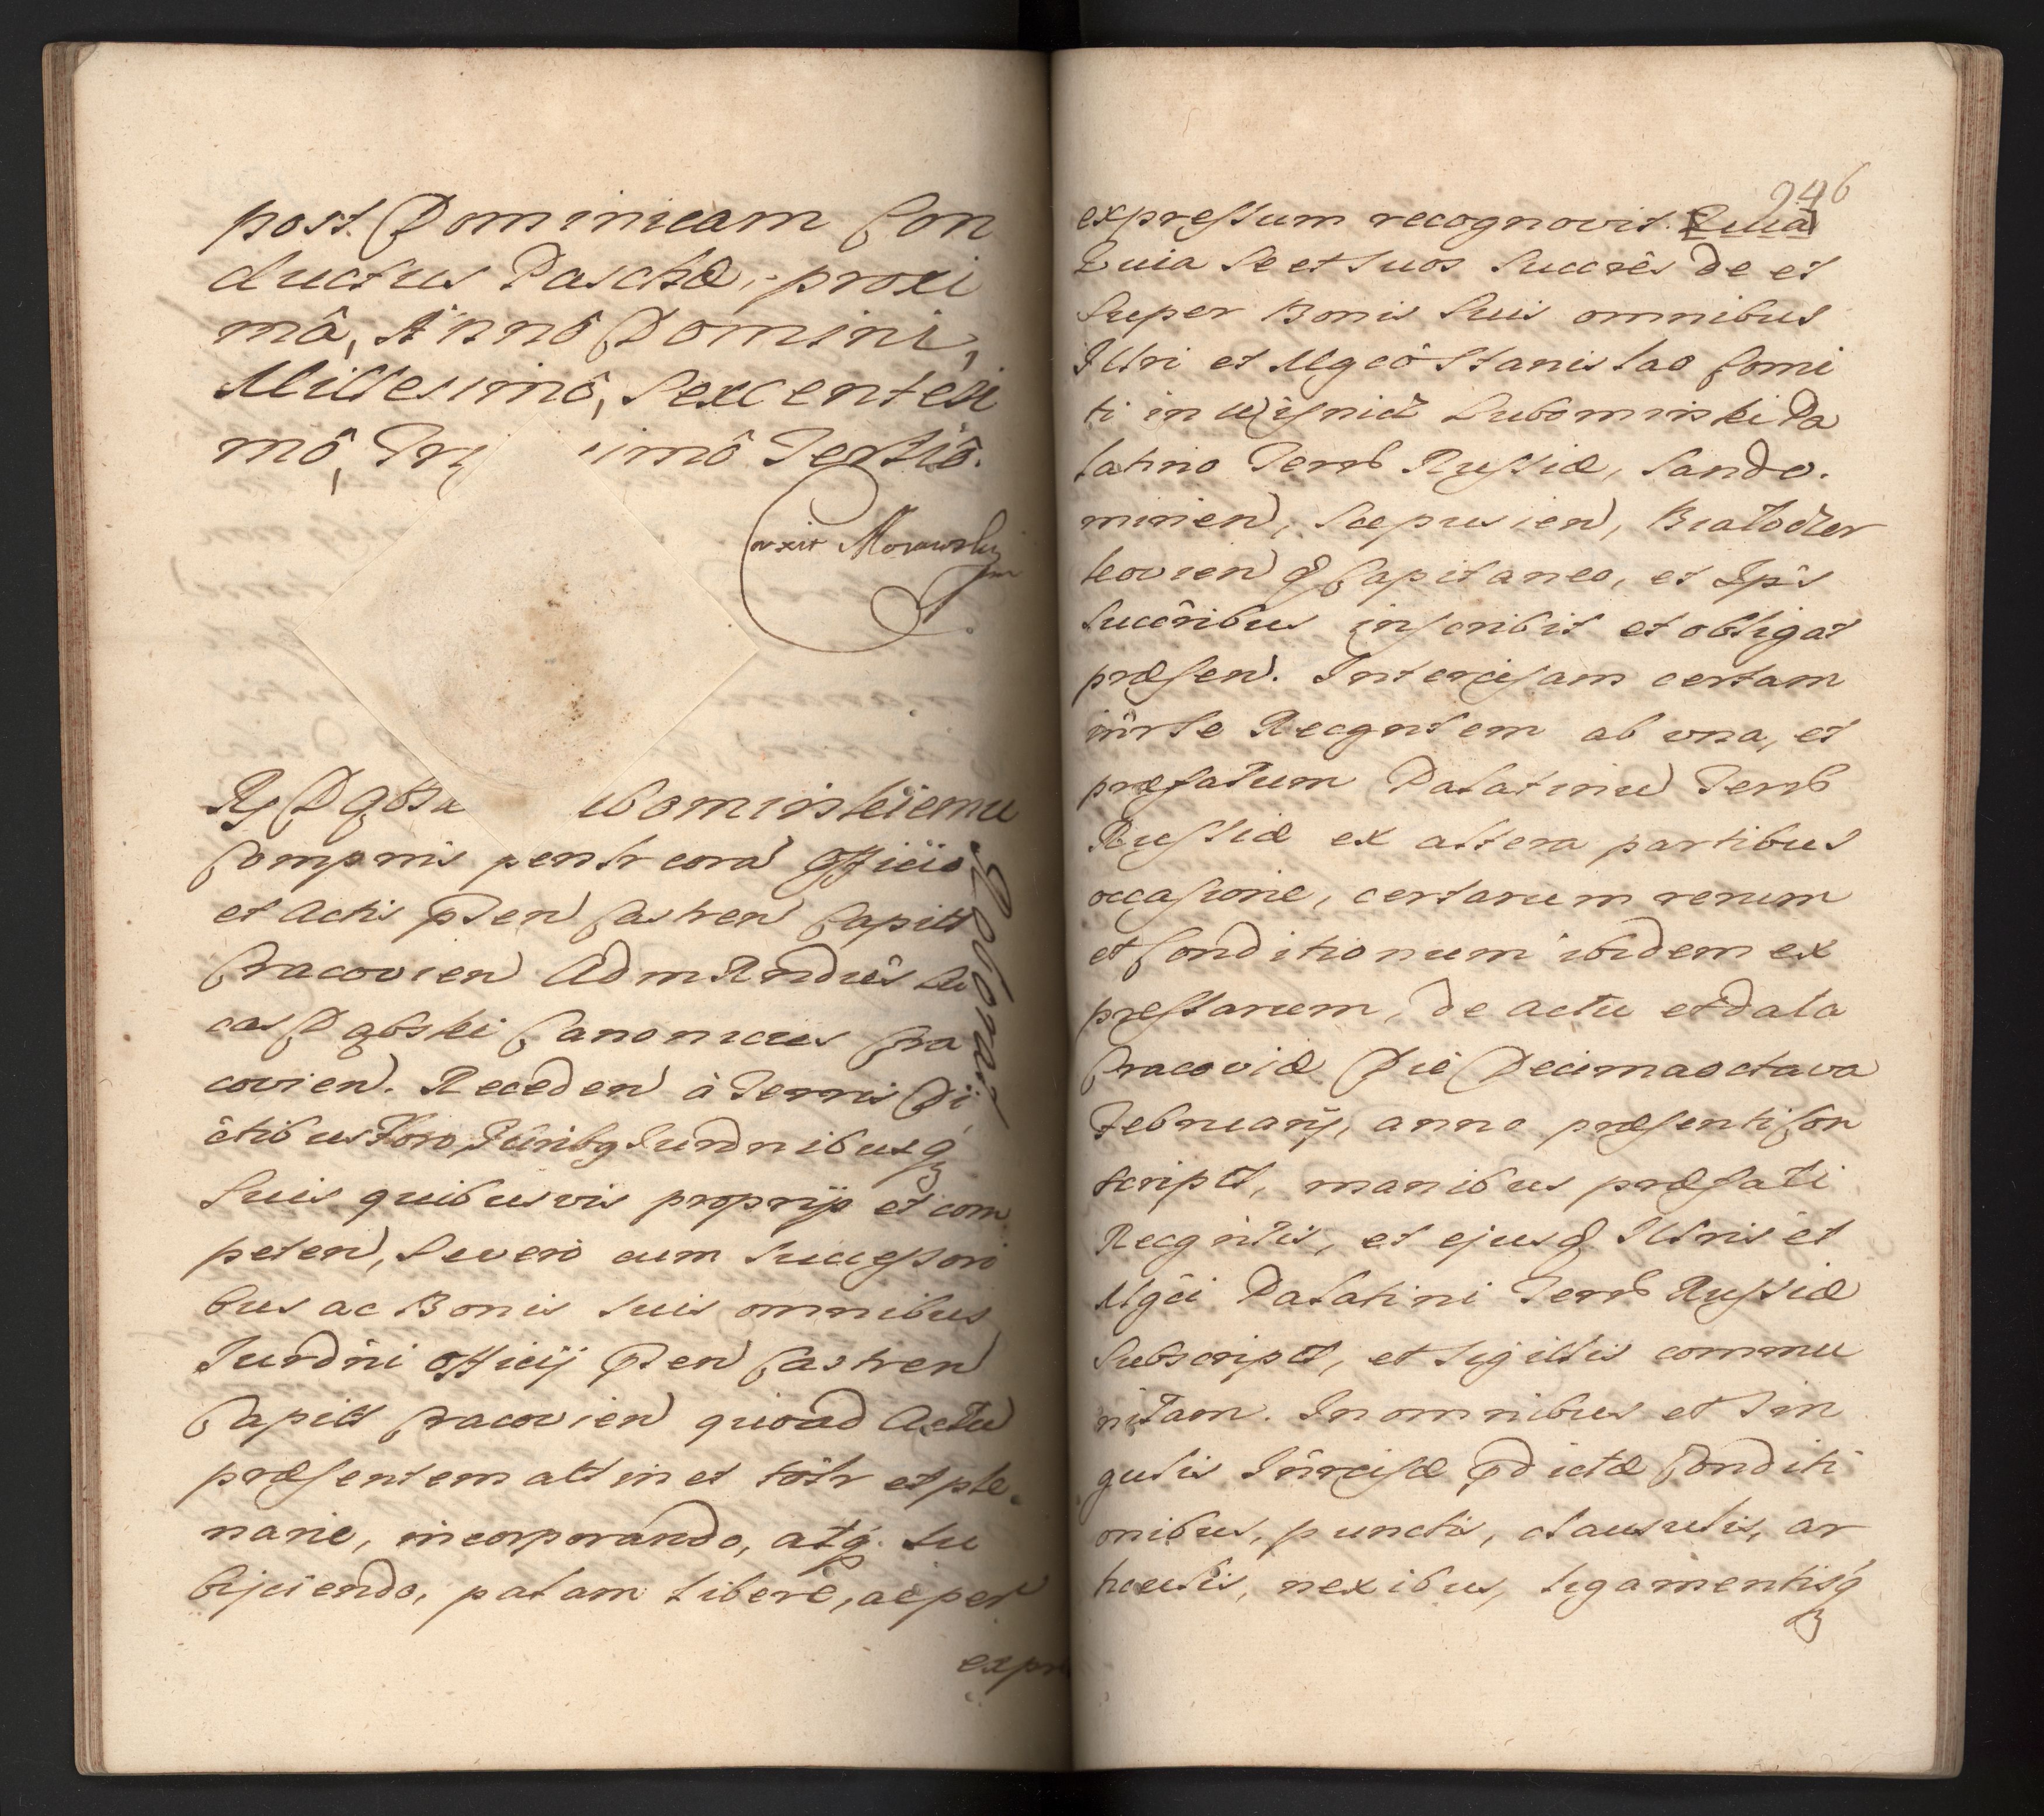 post Dominicam Con
ductus Paschæ, proxi
mâ, Annô Domini,
Millesimô, Sexcentesi
mô, Tri imô Tertiô.
Morawsky
ubominskiemu
Compnis psnlr corã Officio
et Actis Pñtn Castren Capitt
Cracovien Adm Rndûs Lu
cas Dąbski Canonicus Cra
covien. Receden à Terris Di
ctibus Foro, Juribq Jurdnibusq
Suis quibusvis proprijs et com
peten, Se vero cum Successori
bus ac Bonis suis omnibus
Jurdñi officij Pñen Castren
Capitt Cracovien quoad Actũ
præsentem attinet tôtr et ple
narie, incorporando, atq. su
bijciendo, palam libere, ac per
expr
246
expressum recognovit. Quia
Quia Se et suos Succrês de et
super Bonis suis omnibus
Illri et Mgcô Stanislao Comi
ti in Wisnicz Lubominski Pa
latino Terrb Russiæ, Sando.
mirien, Scepusien, Białocer
kovien q Capitaneo, et Ips
succribus inscribit et obligat
præsen. Intercisam certam
intr se Recgntem ab una, et
præfatum Palatinũ Terrb
Russiæ ex altera partibus
occasione, certarum rerum
et Conditionum ibidem ex
pressarum, de actu et data
Cracoviæ Die Decima octava
February, anno præsenti Con
script, manibus præfati
Recgntis, et ejusd. Illris et
Mgci Palatini Terrb Russiæ
Subscript, et sigillis commu
nitam. In omnibus et sin
gulis Intrcisæ pdictæ Conditi
onibus, punctis, clausulis, ar
ticulis, nexibus, ligamentisq
Roboraã